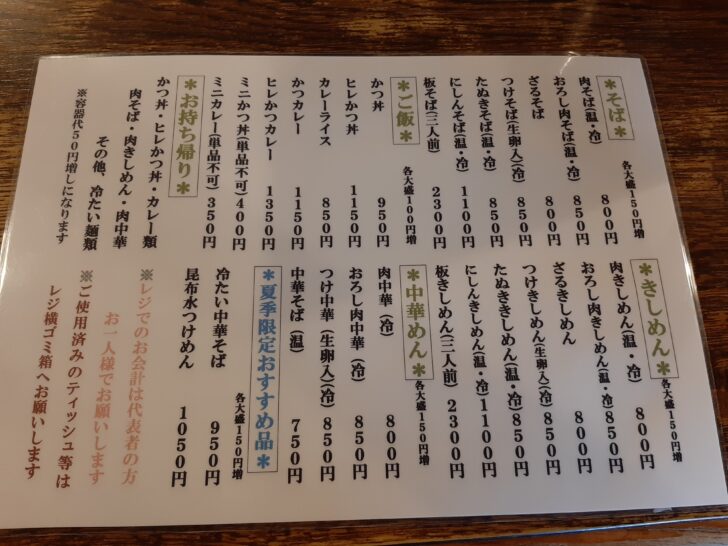 ＊そば＊
各大盛150円増
肉そば(温・冷) 800円
おろし肉そば(温・冷) 850円
ざるそば 800円
つけそば(生卵入)(冷) 850円
たぬきそば(温・冷) 850円
にしんそば(温・冷) 1100円
板そば(三人前) 2300円
＊ご飯＊
各大盛100円増
かつ丼 950円
ヒレかつ丼 1150円
カレーライス 850円
かつカレー 1150円
ヒレかつカレー 1350円
ミニかつ丼(単品不可)400円
ミニカレー(単品不可)350円
＊お持ち帰り＊
かつ丼・ヒレかつ丼・カレー類
肉そば・肉きしめん・肉中華
その他、冷たい麺類
※容器代50円増しになります
＊きしめん＊
各大盛150円増
肉きしめん(温・冷) 800円
おろし肉きしめん(温・冷)850円
ざるきしめん 800円
つけきしめん(生卵入)(冷)850円
たぬききしめん(温・冷)850円
にしんきしめん(温・冷)1100円
板きしめん(三人前)2300円
＊中華めん＊
各大盛150円増
肉中華(冷) 800円
おろし肉中華(冷) 850円
つけ中華(生卵入)(冷)850円
中華そば(温) 750円
＊夏季限定おすすめ品＊
各大盛150円増
冷たい中華そば 950円
昆布水つけめん 1050円
※レジでのお会計は代表者の方
お一人様でお願いします
※ご使用済みのティッシュ等は
レジ横ゴミ箱へお願いします